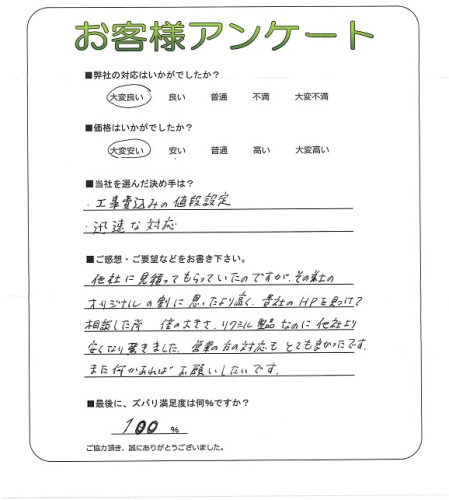 お客様アンケート
■弊社の対応はいかがでしたか？
大変良い 良い 普通 不満 大変不満
■価格はいかがでしたか？
大変安い 安い 普通 高い 大変高い
■当社を選んだ決め手は？
・工事費込みの値段設定
・迅速な対応
■ご感想・ご要望などをお書き下さい。
他社に見積ってもらっていたのですが、その社の
オリジナルの割に思ったより高く、貴社のHPを見つけて
相談した所 倍の大きさ、リクシル製品なのに他社より
安くなり驚きました。営業の方の対応もとても良かったです。
また何かあればお願いしたいです。
■最後に、ズバリ満足度は何％ですか？
100 ％
ご協力頂き、誠にありがとうございました。